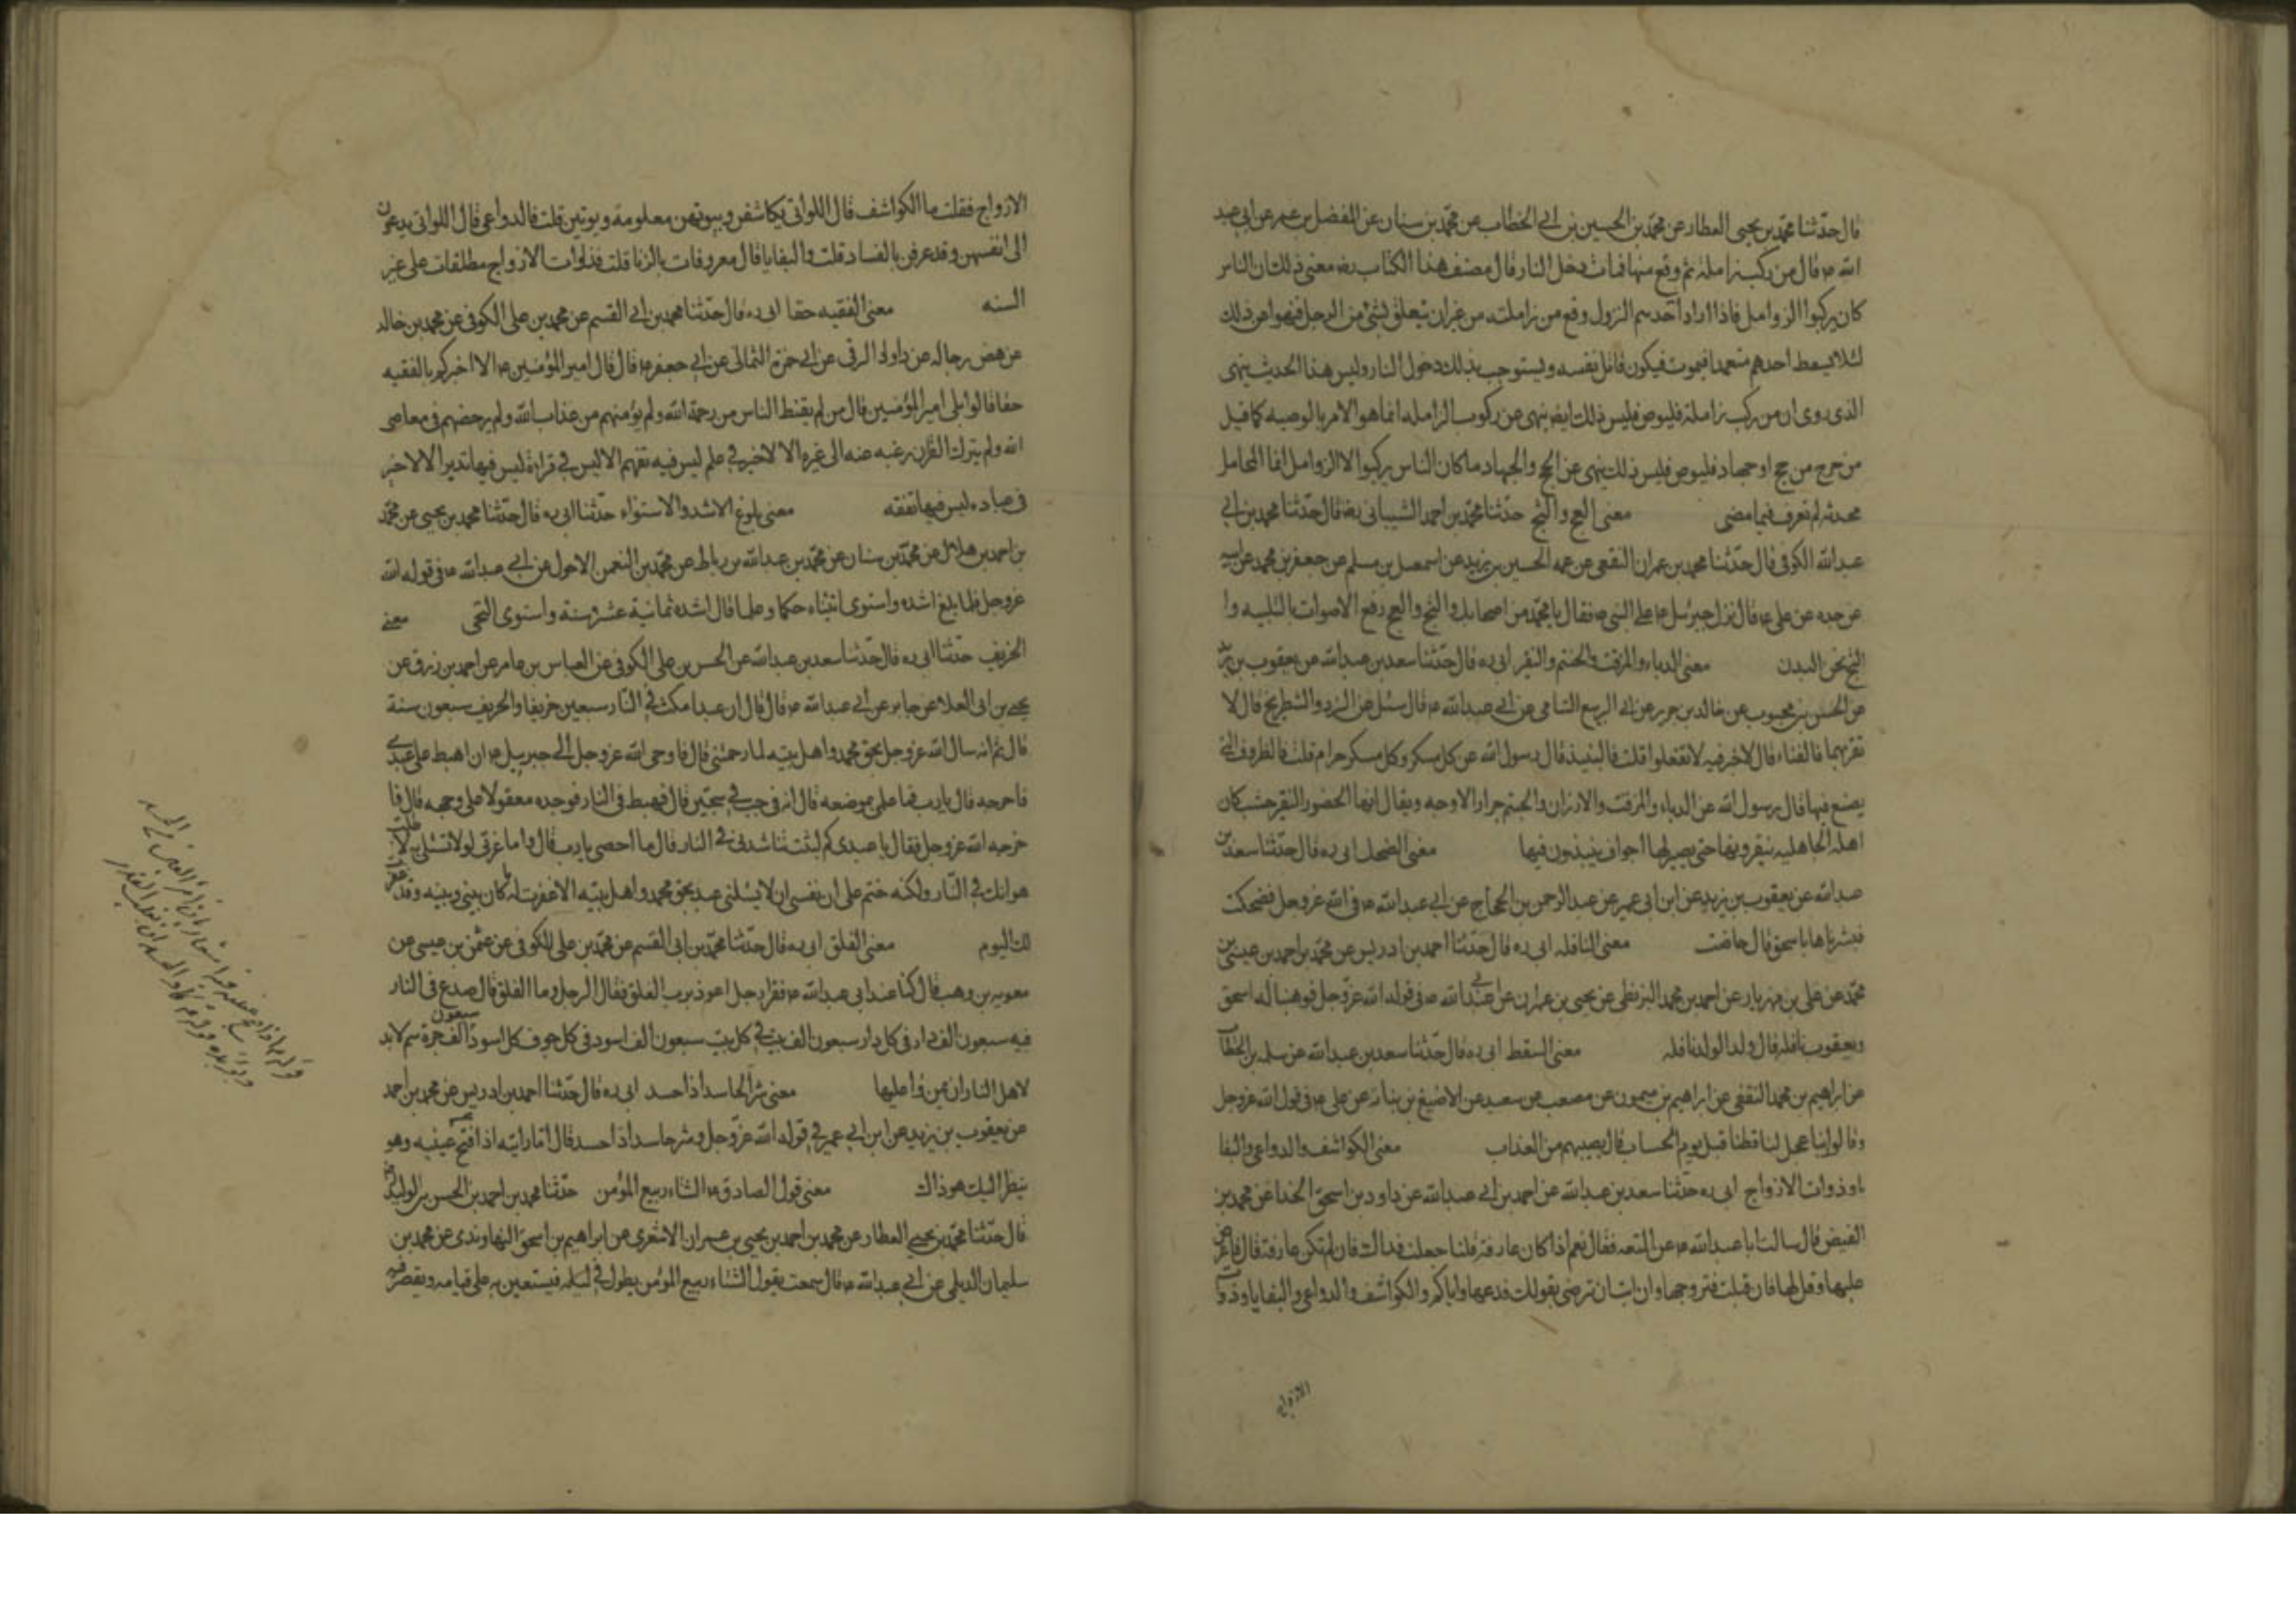 قال حدثنا محمد بن يحيى العطار عن محمد بن الحسين بن ابي الخطاب عن محمد بن سنان عن المفضل بن عمر عن ابي عبد
الله ع قال من ركب زاملة ثم وقع منها فمات دخل النار قال مصنف هذا الكتاب رضه معنى ذلك ان الناس
كان يركبوا الزوامل فاذا اراد احدهم النزول وقع من زاملته من غير ان يتعلق بشئ من الرحل فنهوا عن ذلك
لئلا يسقط احدهم متعمدا فيموت فيكون قاتل نفسه ويستوجب بذلك دخول النار وليس هذا الحديث ينهى
الذى روى ان من ركب زاملة فليوص فليس ذلك ايضا ينهى عن ركوب الزامله انما هو الامر بالوصيه كما قيل
من خرج من حج او جهاد فليوص فليس ذلك ينهى عن الحج والجهاد ما كان الناس يركبوا الا الزوامل انما المحامل
محدثه لم تعرف فيما مضى معنى العج والثج حدثنا محمد بن احمد الشيبانى رضه قال حدثنا محمد بن ابي
عبد الله الكوفى قال حدثنا محمد بن عمران النخعى عن عمه الحسين بن يزيد عن اسمعيل بن مسلم عن جعفر بن محمد عن ابيه
عن جده عن على ع قال نزل جبرئيل ع على النبى ص فقال يا محمد مر اصحابك والثج والعج رفع الاصوات بالتلبيه وا
الثج نحر البدن معنى الدباء والمزفت والحنتم والنقير ابى ره قال حدثنا سعد بن عبد الله عن يعقوب بن يزيد
عن الحسن بن محبوب عن خالد بن جرير عن ابى الربيع الشامى عن ابى عبد الله ع قال سئل عن النرد والشطرنج قال لا
تقربهما قلت فالغناء قال لا خير فيه لا تفعلوا قلت فالنبيذ قال رسول الله عن كل مسكر وكل مسكر حرام قلت فالظروف التى
يصنع فيها قال رسول الله عن الدباء والمزفت والاوزان والحنتم جرار الاوجه ويقال انها الخضر والنقير خشب كان
اهل الجاهليه ينقرونها حتى يصير لها اجواف ينبذون فيها معنى الضحك ابى ره قال حدثنا سعد بن
عبد الله عن يعقوب بن يزيد عن ابن ابى عمير عن عبد الرحمن بن الحجاج عن ابى عبد الله ع فى الله عز وجل فضحكت
فبشرناها باسحق قال حاضت معنى النافله ابى ره قال حدثنا احمد بن ادريس عن محمد بن احمد بن عيسى بن
محمد عن على بن مهزيار عن احمد بن محمد البزنطى عن يحيى بن عمران عن ابى عبد الله ع فى قوله الله عز وجل فوهبنا له اسحق
ويعقوب نافله قال ولد الولد نافله معنى القط ابى ره قال حدثنا سعد بن عبد الله عن سلمه بن الخطاب
عن ابراهيم بن محمد الثقفى عن ابراهيم بن ميمون عن مصعب عن سعد عن الاصبغ بن نباته عن على ع فى قول الله عز وجل
وقالوا ربنا عجل لنا قطنا قبل يوم الحساب قال نصيبهم من العذاب معنى الكواشف والدواعى والبغا
يا وذوات الازواج ابى ره حدثنا سعد بن عبد الله عن احمد بن ابى عبد الله عن داود بن اسحق الحذا عن محمد بن
الفيض قال سالت ابا عبد الله ع عن المتعه فقال نعم اذا كان عارفة قلنا جعلت فداك فان لم تكن عارفة قال فاعرض
عليها وقل لها فان قبلت فتزوجها وان ابت ان ترضى بقولك فدعها واياكم والكواشف والدواعى والبغايا وذوات
الازواج
الازواج فقلت ما الكواشف قال اللواتى يكاشفن وبيوتهن معلومة ويوتين قلت فالدواعى قال اللواتى يدعون
الى انفسهن وقد عرفن بالفساد قلت والبغايا قال معروفات بالزنا قلت فذوات الازواج مطلقات على غير
السنه معنى الفقيه حقا ابى ره قال حدثنا محمد بن ابى القسم عن محمد بن على الكوفى عن محمد بن خالد
عن بعض رجاله عن داود الرقى عن ابى حمزة الثمالى عن ابى جعفر ع قال قال امير المؤمنين ع الا اخبركم بالفقيه
حقا قالوا بلى امير المؤمنين قال من لم يقنط الناس من رحمة الله ولم يؤمنهم من عذاب الله ولم يرخصهم فى معاصى
الله ولم يترك القرآن رغبه عنه الى غيره الا لا خير فى علم ليس فيه تفهم الا ليس فى قراءة ليس فيها تدبر الا لا خير
فى عباده ليس فيها تفقه معنى بلوغ الاشد والاستواء حدثنا ابى ره قال حدثنا محمد بن يحيى عن محمد
بن احمد بن هلال عن محمد بن سنان عن محمد بن عبد الله بن رباط عن محمد بن النعمن الاحول عن ابى عبد الله ع فى قوله الله
عز وجل فلما بلغ اشده واستوى اتيناه حكما وعلما قال اشده ثمانية عشر سنة واستوى التحى معنى
الخريف حدثنا ابى ره قال حدثنا سعد بن عبد الله عن الحسن بن على الكوفى عن العباس بن عامر عن احمد بن رزق عن
يحيى بن ابى العلا عن جابر عن ابى عبد الله ع قال قال ان عبدا مكث فى النار سبعين خريفا والخريف سبعون سنة
قال ثم انه سال الله عز وجل بحق محمد واهل بيته لما رحمتنى قال فاوحى الله عز وجل الى جبرييل ع ان اهبط على عبدى
فاخرجه قال يا رب فما علمى بموضعه قال انه فى جب فى سجين قال فهبط فى النار فوجده معقولا على وجهه قال فا
خرجه الله عز وجل فقال يا عبدى كم لبثت تناشدنى فى النار قال ما احصى يا رب قال اما وعزتى لولا تسئلنى به لا
هوانك فى النار ولكنه حتم على ان نفسى ان لا يسئلنى عبد بحق محمد واهل بيته الا غفرت له ما كان بينى وبينه وقد
لك اليوم معنى الفلق ابى ره قال حدثنا محمد بن ابى القسم عن محمد بن على الكوفى عن عثمن بن عيسى عن
معويه بن وهب قال كنا عند ابى عبد الله ع فقرا رجل اعوذ برب الفلق فقال الرجل وما الفلق قال صدع فى النار
فيه سبعون الف دار فى كل دار سبعون الف بيت فى كل بيت سبعون الف اسود فى كل جوف كل اسود سبعون الف جرة سم لابد
لاهل النار ان يمروا عليها معنى شر الحاسد اذا حسد ابى ره قال حدثنا احمد بن ادريس عن محمد بن احمد
عن يعقوب بن يزيد عن ابن ابى عمير فى قوله الله عز وجل ومن شر حاسد اذا حسد قال اما رايته اذا فتح عينيه وهو
ينظر اليك هو ذاك معنى قول الصادق ع الشتاء ربيع المؤمن حدثنا محمد بن احمد بن الحسن بن الوليد
قال حدثنا محمد بن يحيى العطار عن محمد بن احمد بن يحيى بن عمران الاشعرى عن ابراهيم بن اسحق النهاوندى عن محمد بن
سليمان الديلمى عن ابى عبد الله ع قال سمعت يقول الشتاء ربيع المؤمن يطول فى ليله فيستعين به على قيامه ويقصر فيه